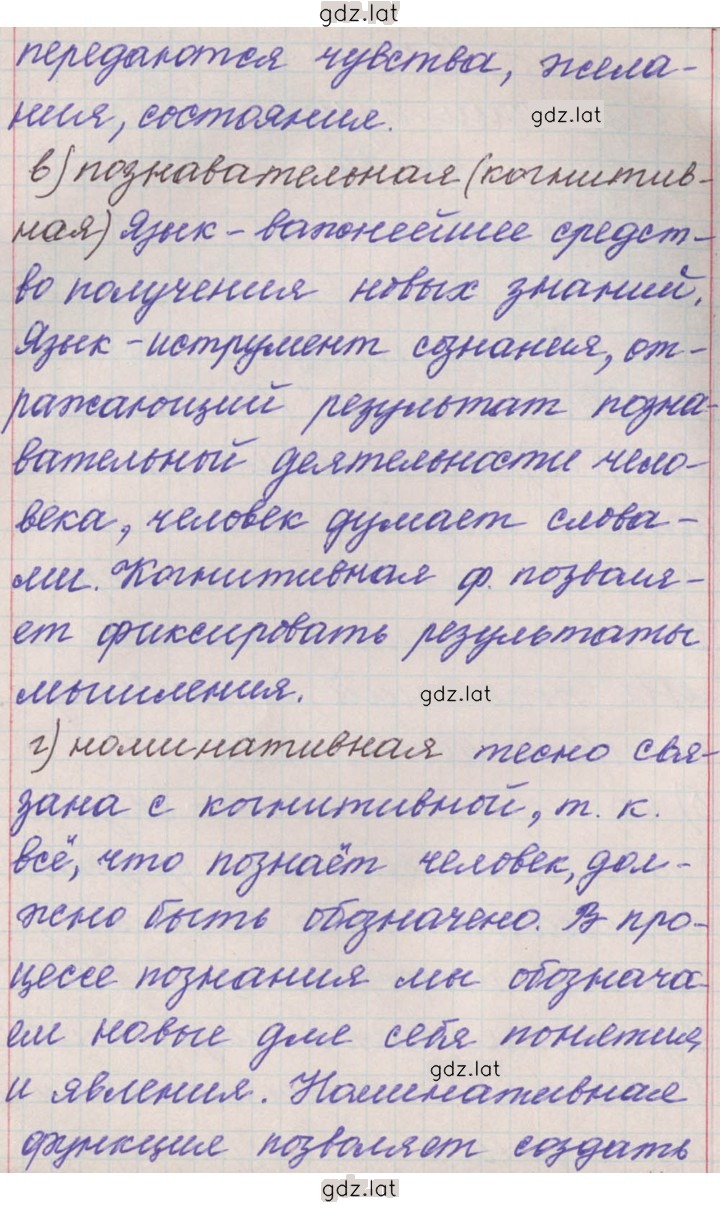 gdz.lat
передаются чувства, жела-
ния, состояния.
gdz.lat
в) познавательная (когнитив-
ная) Язык - важнейшее средст-
во получения новых знаний.
Язык - иструмент сознания, от-
ражающий результат позна-
вательной деятельности чело-
века, человек думает слова-
ми. Когнитивная ф. позволя-
ет фиксировать результаты
мышления.
gdz.lat
г) номинативная тесно свя-
зана с когнитивной, т. к.
всё, что познаёт человек, дол-
жно быть обозначено. В про-
цессе познания мы обознача-
ем новые для себя понятия
gdz.lat
и явления. Номинативная
функция позволяет создать
gdz.lat